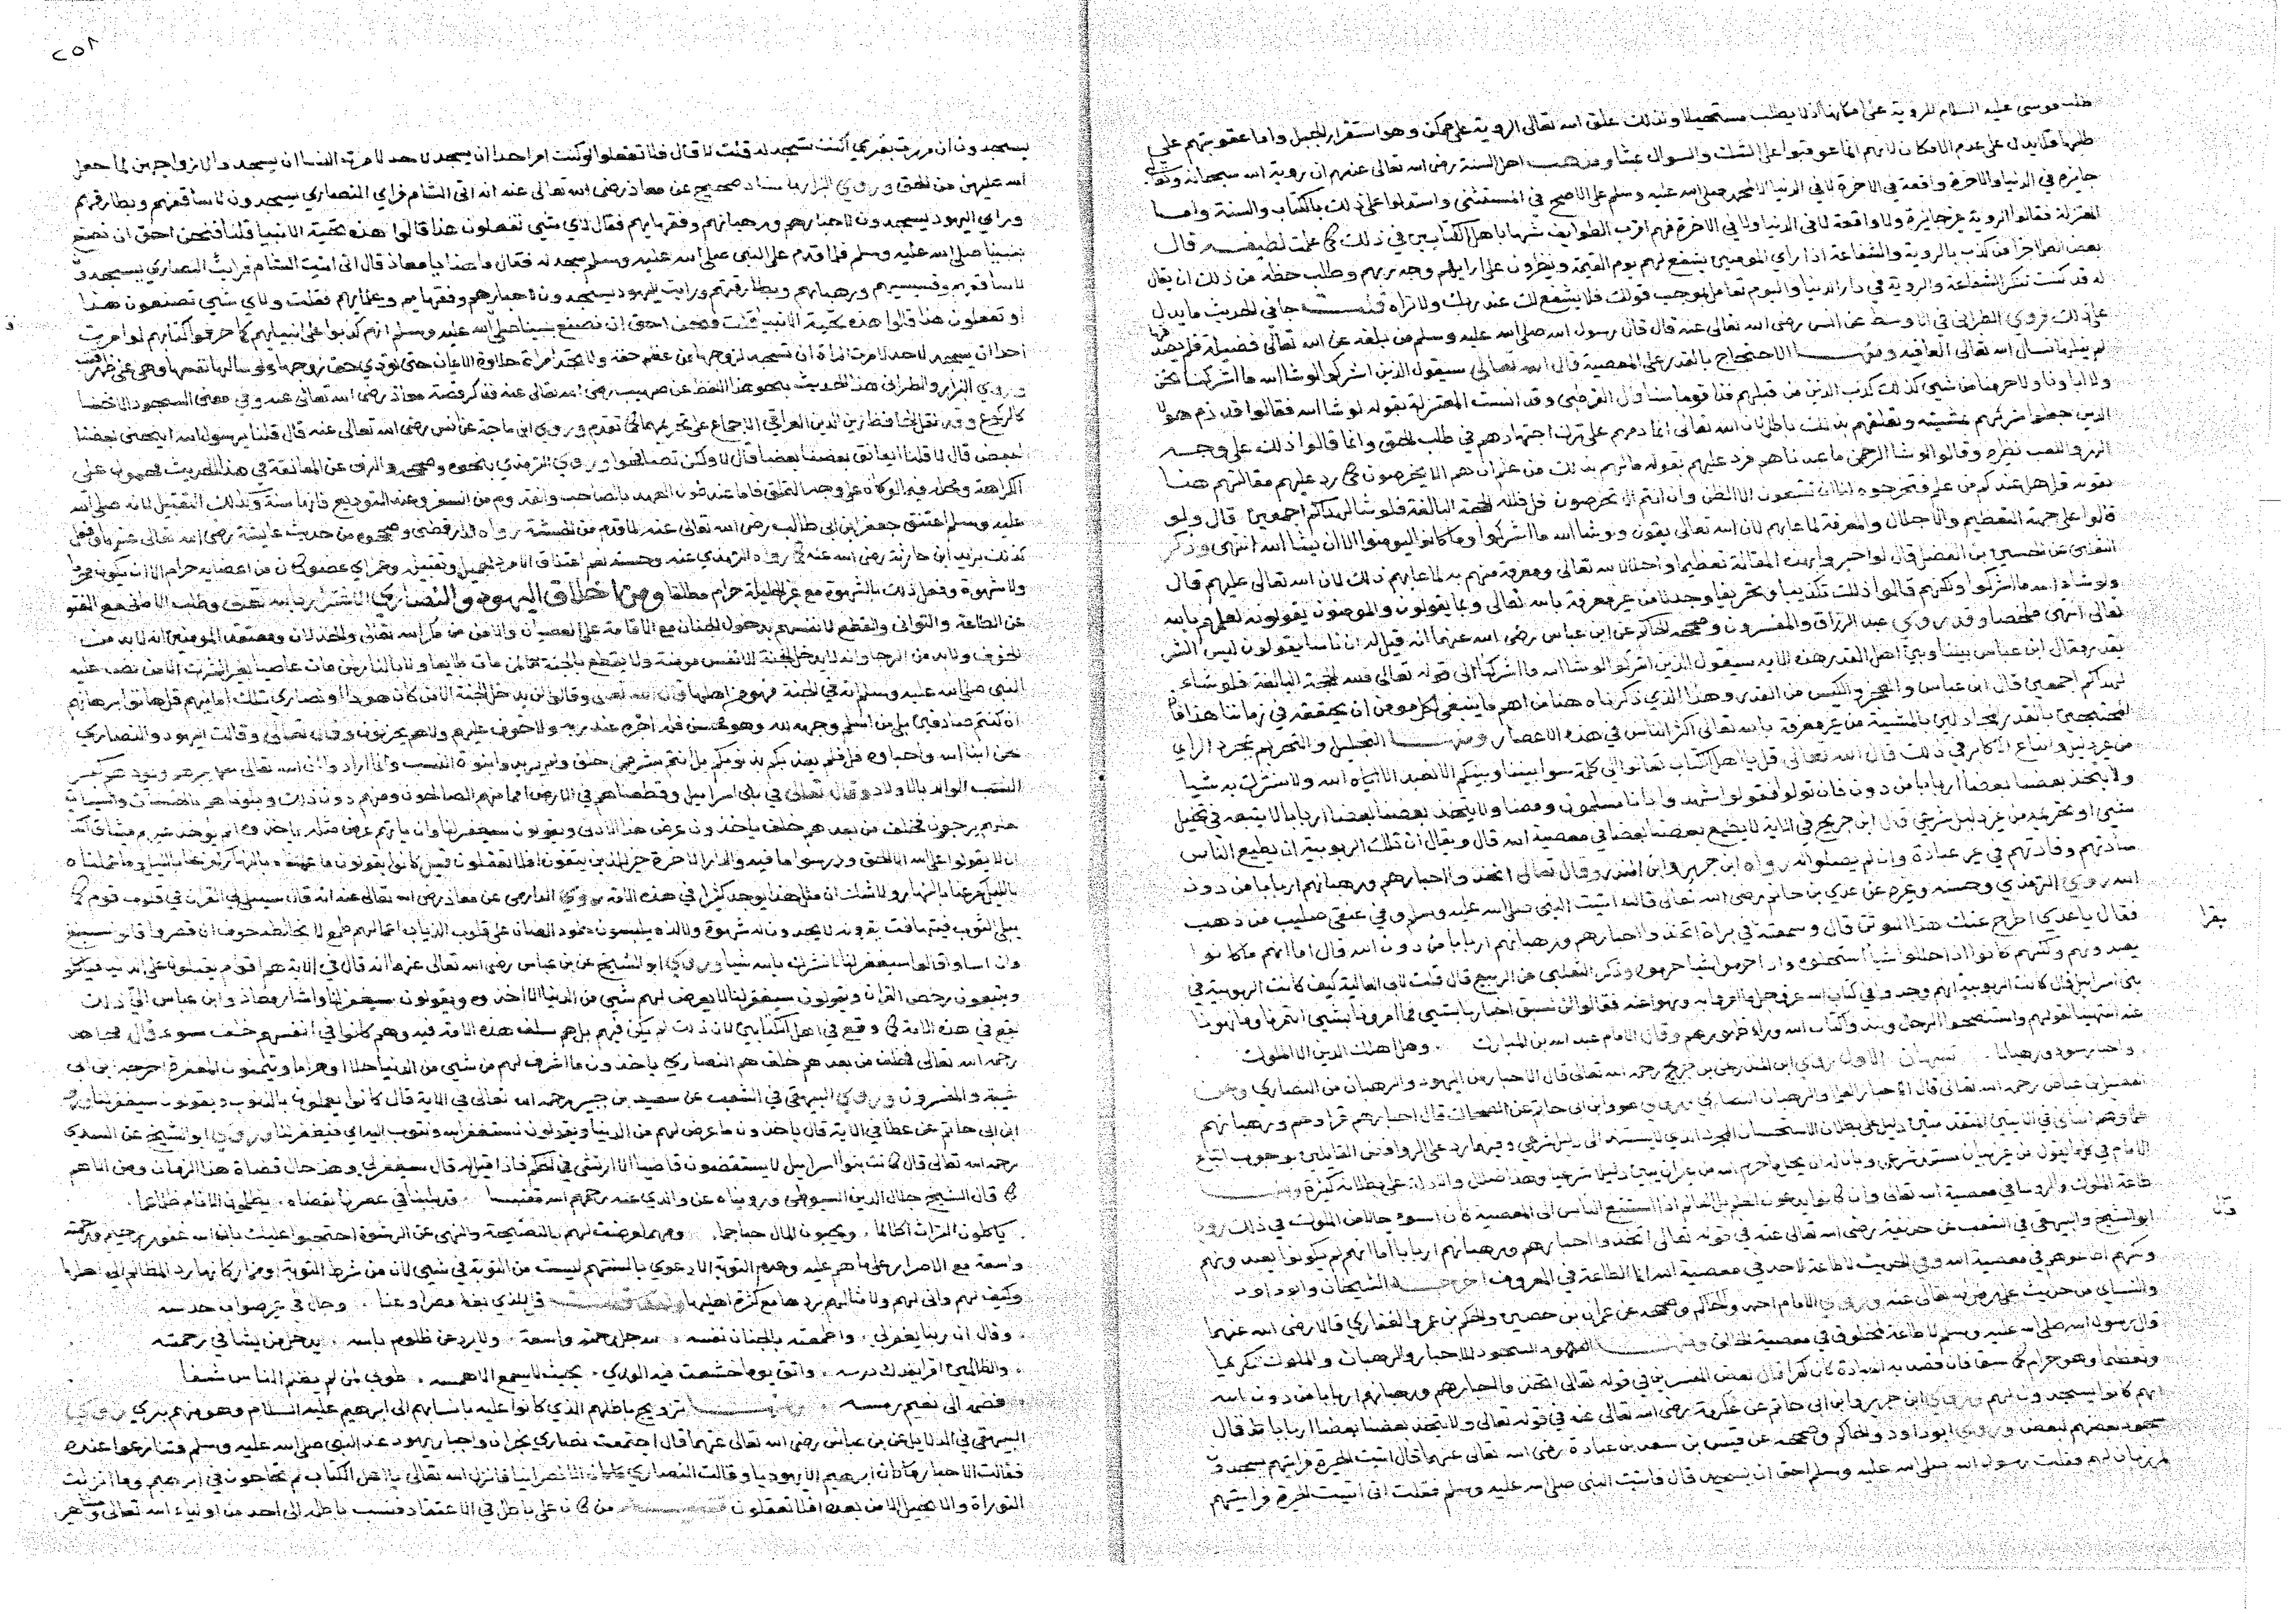 طلب موسى عليه السلام للروية على امكانها اذ لا يطلب مستحيلا وكذلك علق الله تعالى الروية على ممكن وهو استقرار الجبل واما عقوبتهم على
طلبها فلا يدل على عدم الامكان لانهم انما عوقبوا على الشك والسوال عبثا ومذهب اهل السنة رضى الله تعالى عنهم ان روية الله سبحانه وتعالى
جايزة في الدنيا والاخرة واقعة في الاخرة لا في الدنيا الا لمحمد صلى الله عليه وسلم على الاصح في المستثنى واستدلوا على ذلك بالكتاب والسنة واما
المعتزلة فقالوا الروية غير جايزة ولا واقعة لا في الدنيا ولا في الاخرة فهم اقرب الطوايف شبها باهل الكتابين في ذلك كما علمت لطيفه قال
بعض لمن كذب بالروية والشفاعة اذا راي المومنين يشفع لهم يوم القيمة وينظرون على ارايكهم وجه ربهم وطلب حظه من ذلك ان يقال
له قد كنت تنكر الشفاعة والروية في دار الدنيا واليوم تعامل بموجب قولك فلا يشفع لك عند ربك ولا تراه قلت جا في الحديث ما يدل
على ذلك فروي الطبراني في الاوسط عن انس رضى الله تعالى عنه قال قال رسول الله صلى الله عليه وسلم من بلغه عن الله تعالى فضيلة فلم يصدق بها
لم ينلها نسال الله تعالى العافيه ومنها الاحتجاج بالقدر على المعصية قال الله تعالى سيقول الذين اشركوا لو شا الله ما اشركنا نحن
ولا اباونا ولا حرمنا من شي كذلك كذب الذين من قبلهم حتى ذاقوا باسنا قال القرطبي وقد المعتزلة بقوله لو شا الله فقالوا قد ذم هولا
الذين جعلوا شركهم بمشيته وتعلقهم بذلك باطل لان الله تعالى انما ذمهم على ترك اجتهادهم في طلب الحق وانما قالوا ذلك على وجه
الهزو واللعب نظيره وقالوا لو شا الرحمن ما عبدناهم فرد عليهم بقوله ما لهم بذلك من علم ان هم الا يخرصون كما رد عليهم مقالتهم هنا
بقوله قل هل عندكم من علم فتخرجوه لنا ان تتبعون الا الظن وان انتم الا تخرصون قل فلله الحجة البالغة فلو شا لهداكم اجمعين قال ولو
قالوا على جهة التعظيم والاجلال والمعرفة لما عابهم لان الله تعالى يقول ولو شا الله ما اشركوا وما كانوا ليومنوا الا ان يشا الله انتهى وذكر
الثعلبي عن الحسين بن الفضل قال لو اخبروا بهذه المقالة تعظيما واجلالا لله تعالى ومعرفة منهم به لما عابهم ذلك لان الله تعالى عليهم قال
ولو شا الله ما اشركوا ولكنهم قالوا ذلك تكذيبا وتخريفا وجدلا من غير معرفة بالله تعالى وبما يقولون والمومنون يقولونه لعلمهم بالله
تعالى انتهى ملخصا وقد روي عبد الرزاق والمفسرون وصححه الحاكم عن ابن عباس رضى الله عنهما انه قيل له ان ناسا يقولون ليس الشر
بقدر فقال ابن عباس بيننا وبين اهل القدر هذه الايه سيقول الذين اشركوا لو شا الله ما اشركنا الى قوله تعالى فلله الحجة البالغة فلو شاء
لهداكم اجمعين قال ابن عباس والعجز والكيس من القدر وهذا الذي ذكرناه هنا من اهم ما ينبغي لكل مومن ان يحققه في زماننا هذا فان
المحتجين بالقدر المجادلين بالمشية من غير معرفة بالله تعالى اكثر الناس في هذه الاعصار ومنها التحليل والتحريم بمجرد الراي
من غير دليل واتباع الاكابر في ذلك قال الله تعالى قل يا اهل الكتاب تعالوا الى كلمة سوا بيننا وبينكم الا نعبد الا اياه الله ولا نشرك به شيا
ولا يتخذ بعضنا بعضا اربابا من دون فان تولوا فقولوا اشهدوا بانا مسلمون ومعنا ولا يتخذ بعضنا بعضا اربابا لا يتبعه في تحليل
شي او تحريمه من غير دليل شرعي قال ابن جريج في الاية لا يطيع بعضنا بعضا في معصية الله قال ويقال ان تلك الربوبية ان يطيع الناس
سادتهم وقادتهم في غير عبادة وان لم يصلوا له رواه ابن جرير وابن المنذر وقال تعالى اتخذوا احبارهم ورهبانهم اربابا من دون
الله روي الترمذي وحسنه وغيره عن عدي بن حاتم رضى الله تعالى قال اتيت النبي صلى الله عليه وسلم وفي عنقي صليب من ذهب
فقال يا عدي اطرح عنك هذا الوثن قال وسمعته في براة اتخذوا احبارهم ورهبانهم اربابا من دون الله قال اما انهم ما كانوا
يعبدونهم ولكنهم كانوا اذا احلوا شيا استحلوه واذا حرموا شيا حرموه وذكر الثعلبي عن الربيع قال قلت لابي العالية كيف كانت الربوبية في
بني اسرايل قال كانت الربوبية انهم وجدوا في كتاب الله عز وجل ما امروا به ونهوا عنه فقالوا لن نسبق احبارنا بشي فما امرونا بشي ائتمرنا وما نهونا
عنه انتهينا لقولهم واستنصحوا الرجال ونبذوا كتاب الله وراء ظهورهم وقال الامام عبد الله بن المبارك وهل اهلك الدين الا الملوك
واحبار سوء ورهبانها تنبيهان الاول روي ابن المنذر عن بن جريج رحمه الله تعالى قال الاحبار من اليهود والرهبان من النصاري وعن
الفضيل بن عياض رحمه الله تعالى قال الاحبار العلما والرهبان وابن ابي حاتم عن الضحاك قال احبارهم قراوهم ورهبانهم
علماوهم الثاني في الايتين المتقدمتين دليل على بطلان الاستحسان المجرد الذي لا يستند الى دليل شرعي وفيهما رد على الروافض القايلين بوجوب اتباع
الامام في كل ما يقول من غير بيان مستند شرعي وبان له ان يحلل ما حرم الله من غير ان يبين دليلا شرعيا وهذا ضلال والادلة على بطلانه كثيرة ومنها
طاعة الملوك والروسا في معصية الله تعالى وان كانوا اذا استتبع الناس الى المعصية كان اسوء حالا من الملوك في ذلك روي
ابو الشيخ والبيهقي في الشعب عن حذيفة رضى الله تعالى عنه في قوله تعالى اتخذوا احبارهم ورهبانهم اربابا اما انهم لم يكونوا يعبدونهم
ولكنهم اطاعوهم في معصية الله وفي الحديث لا طاعة لاحد في معصية الله انما الطاعة في المعروف اخرجه الشيخان وابو داود
والنساي من حديث علي رضى الله تعالى عنه وروي الامام احمد والحاكم وصححه عن عمران بن حصين والحكم بن عمرو الغفاري قالا رضى الله عنهما
قال رسول الله صلى الله عليه وسلم لا طاعة لمخلوق في معصية الخالق ومنها السجود للاحبار والرهبان والملوك تكريما
وتعظيما وهو حرام كما سبق فان قصد به العبادة كان كفرا قال بعض المفسرين في قوله تعالى اتخذوا احبارهم ورهبانهم اربابا من دون الله
انهم كانوا يسجدون لهم وروي ابن جرير وابن ابي حاتم عن عكرمة رضى الله تعالى عنه في قوله تعالى ولا يتخذ بعضنا بعضا اربابا قال
سجود بعضهم لبعض وروي ابو داود والحاكم وصححه عن قيس بن سعد بن عبادة رضى الله تعالى عنهما قال اتيت الحيرة فرايتهم يسجدون
لمرزبان لهم فقلت رسول الله صلى الله عليه وسلم احق ان يسجد له قال فاتيت النبي صلى الله عليه وسلم فقلت اني اتيت الحيرة فرايتهم
يقرا
قال
٢٥٨
يسجدون ان مررت بقبري أكنت تسجد له قلت لا قال فلا تفعلوا لو كنت امر احدا ان يسجد لاحد لامرت النسا ان يسجدن لازواجهن لما جعل
الله عليهن من الحق وروي البزار باسناد صحيح عن معاذ رضى الله تعالى عنه انه اتى الشام فراي النصاري يسجدون لاساقفتهم وبطارقتهم
وراي اليهود يسجدون لاحبارهم ورهبانهم وفقهايهم فقال لاي شي تفعلون هذا قالوا هذه تحية الانبيا قلنا فنحن احق ان نصنع
بنبينا صلى الله عليه وسلم فلما قدم على النبي صلى الله عليه وسلم سجد له فقال ما هذا يا معاذ قال اني اتيت الشام فرايت النصاري يسجدون
لاساقفتهم وقسيسيهم ورهبانهم وبطارقتهم ورايت اليهود يسجدون لاحبارهم وفقهايهم وعلمايهم فقلت ولاي شي تصنعون هذا
او تفعلون هذا قالوا هذه تحية الانبيا قلت فنحن احق ان نصنع بنبينا صلى الله عليه وسلم انهم كذبوا على انبيايهم كما حرفوا كتابهم لو امرت
احدا ان يسجد لاحد لامرت المراة ان تسجد لزوجها من عظم حقه ولا تجد امراة حلاوة الايمان حتى تودي حق زوجها ولو سالها نفسها وهي على ظهر قتب
وروي البزار والطبراني هذا الحديث بنحو هذا اللفظ عن صهيب رضى الله تعالى عنه فذكر قصة معاذ رضى الله تعالى عنه وفي معنى السجود الانحنا
كالركوع وقد نقل الحافظ زين الدين العراقي الاجماع على تحريمهما كما تقدم وروي ابن ماجة عن انس رضى الله تعالى عنه قال قلنا يرسول الله اينحني بعضنا
لبعض قال لا قلنا ايعانق بعضنا بعضا قال لا ولكن تصافحوا وروي الترمذي بنحوه وصححه والنهي عن المعانقة في هذا الحديث محمول على
الكراهة ومحل على وجه التملق فاما عند طول العهد بالصاحب والقدوم من السفر وعند التوديع فانها سنة وكذلك التقبيل لانه صلى الله
عليه وسلم اعتنق جعفر ابن ابي طالب رضى الله تعالى عنه لما قدم من الحبشة رواه الدارقطني وصححوه من حديث عايشة رضى الله تعالى عنها وفعل
كذلك بزيد ابن حارثة رضى الله عنه كما رواه الترمذي عنه وحسنه نعم اعتناق الامرد الجميل وتقبيله وغيره اي عضو كان من اعضايه حرام الا ان يكون محرما
ولا شهوة وفعل ذلك بالشهوة مع غير الحليلة حرام مطلقا ومن اخلاق اليهود والنصاري الاغترار بالله تعالى وطلب الاماني مع الفتور
عن الطاعة والتواني والقطع لانفسهم بدخول الجنان مع الاقامة على العصيان والامن من مكر الله تعالى والخذلان ومعتقد المومنين انه لا بد من
الخوف ولا بد من الرجا وانه لا يدخل الجنة الا نفس مومنة ولا يقطع بالجنة لمن مات طايعا ولا بالنار لمن مات عاصيا بغير الشرك الا من نص عليه
النبي صلى الله عليه وسلم انه في الجنة فهو من اهلها قال الله تعالى وقالوا لن يدخل الجنة الا من كان هودا او نصاري تلك امانيهم قل هاتوا برهانكم
ان كنتم صادقين بلى من اسلم وجهه لله وهو محسن فله اجره عند ربه ولا خوف عليهم ولا هم يحزنون وقال تعالى وقالت اليهود والنصاري
نحن ابنا الله واحباوه قل فلم يعذبكم بذنوبكم بل انتم بشر ممن خلق ولم يريدوا بنوة النسب
وقال تعالى في بني اسرايل وقطعناهم في الارض امما منهم الصالحون ومنهم دون ذلك وبلوناهم بالحسنات والسيات
لعلهم يرجعون فخلف من بعدهم خلف ياخذون عرض هذا الادنى ويقولون سيغفر لنا وان ياتهم عرض مثله ياخذوه الم يوخذ عليهم ميثاق الكتاب
ان لا يقولوا على الله الا الحق ودرسوا ما فيه والدار الاخرة خير للذين يتقون افلا تعقلون قيل كانوا يقولون ما عملناه بالنهار كفر عنا بالليل وما عملناه
بالليل كفر عنا بالنهار ولا شك ان مثل هذا يوجد كثيرا في هذه الامة روي الدارمي عن معاذ رضى الله تعالى عنه انه قال سيبلى القران في قلوب قوم كما
يبلى الثوب فيتهافت يقرونه لا يجدون له شهوة ولا لذه يلبسون جلود الضان على قلوب الذياب اعمالهم طمع لا يخالطه خوف ان قصروا قالوا سنبلغ
وان اساوا قالوا سيغفر لنا لا نشرك بالله شيا وروي ابو الشيخ عن بن عباس رضى الله تعالى عنهما انه قال في الاية هو اقوام يقبلون على الدنيا فياكلونها
ويتبعون رخص القران ويقولون سيغفر لنا لا يعرض لهم شي من الدنيا الا اخذوه ويقولون سيغفر لنا واشار معاذ وابن عباس الى ذلك
يقع في هذه الامة كما وقع في اهل الكتابين لان ذلك لم يكن فيهم بل هم سلف هذه الامة فيه وهم كانوا في انفسهم خلف سوء قال مجاهد
رحمه الله تعالى فخلف من بعدهم خلف هم النصاري ياخذون ما اشرف لهم من شي من الدنيا حلالا وحراما ويتمنون المغفرة اخرجه ابن ابي
شيبة والمفسرون وروي البيهقي في الشعب عن سعيد بن جبير رحمه الله تعالى في الاية قال كانوا يعملون بالذنوب ويقولون سيغفر لنا وروي
ابن ابي حاتم عن عطا في الاية قال ياخذون ما عرض لهم من الدنيا ويقولون نستغفر الله ونتوب اليه اي فيغفر لنا وروي ابو الشيخ عن السدي
رحمه الله تعالى قال كانت بنوا اسرايل لا يستقضون قاضيا الا ارتشى في الحكم فاذا قيل له قال سيغفر لي وهذا حال قضاة هذا الزمان ومن
كما قال الشيخ جلال الدين السيوطي ورويناه عن والدي عنه رحمهم الله قد بلينا في عصرنا بقضاه يظلمون الانام ظلما عما
ياكلون التراث اكلا لما ويحبون المال حبا جما ومهما تعرضت لهم بالنصيحة والنهي عن الرشوة احتجوا عليك بان الله غفور رحيم ورحمته
واسعة مع الاصرار على ما هم عليه وعدم التوبة الا دعوي بالسنتهم ليست من التوبة في شي لان من شرط التوبة او من اركانها رد المظالم الى اهلها
وكيف لهم واني لهم ولا مال لهم بردها مع كثرة اهلها
وقال ان ربنا يغفر لي واطمعته بالجنان نفسه الله جل رحمته واسعة ولا يرد عن ظلوم باسه يدخل من يشا في رحمته
والظالمين واتق يوما خشعت فيه الوري بحيث لا يسمع الا همسه طوبى لمن لم يظلم الناس شفا
ترويج باطلهم الذي كانوا عليه بانتسابهم الى ابرهيم عليه السلام وهو منهم بري روي
البيهقي في الدلايل عن بن عباس رضى الله تعالى عنهما قال اجتمعت نصاري نجران واحبار يهود عند النبي صلى الله عليه وسلم فتنازعوا عنده
فقالت الاحبار ما كان ابرهيم الا يهوديا وقالت النصاري ما كان الا نصرانيا فانزل الله تعالى يا اهل الكتاب لم تحاجون في ابرهيم وما انزلت
التوراة والانجيل الا من بعده افلا تعقلون من كان على باطل في الاعتقاد فنسب باطله الى احد من اولياء الله تعالى